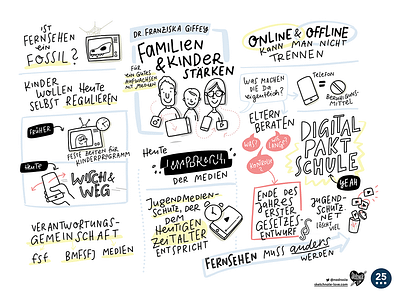 IST
FERNSEHEN
ein
FOSSIL?
KINDER
WOLLEN HEUTE
SELBST REGULIEREN
FRÜHER
FESTE ZEITEN FÜR
KINDERPROGRAMM
HEUTE
WISCH &
WEG
VERANTWORTUNGS-
GEMEINSCHAFT
fsf BMFSFJ MEDIEN
DR. FRANZISKA GIFFEY
FAMILIEN
& KINDER
STÄRKEN
FÜR
EIN GUTES
AUFWACHSEN
MIT MEDIEN
Heute
LAMPENFISCH
DER MEDIEN
JUGENDMEDIEN-
SCHUTZ, DER
DEM
HEUTIGEN
ZEITALTER
ENTSPRICHT
ONLINE & OFFLINE
KANN MAN NICHT
TRENNEN
WAS MACHEN
DIE DA
EIGENTLICH?
TELEFON
=
BERUHIGUNGS-
MITTEL
ELTERN
BERATEN
WAS?
WIE
LANGE?
KONTROLLE
?
DIGITAL
PAKT
SCHULE
YEAH
ENDE DES
JAHRES
ERSTER
GESETZES-
ENTWURF
JUGEND-
SCHUTZ.
NET
LÖSCHT VIEL
FERNSEHEN MUSS anders
WERDEN
@nadrosia
sketchnote-love.com
25